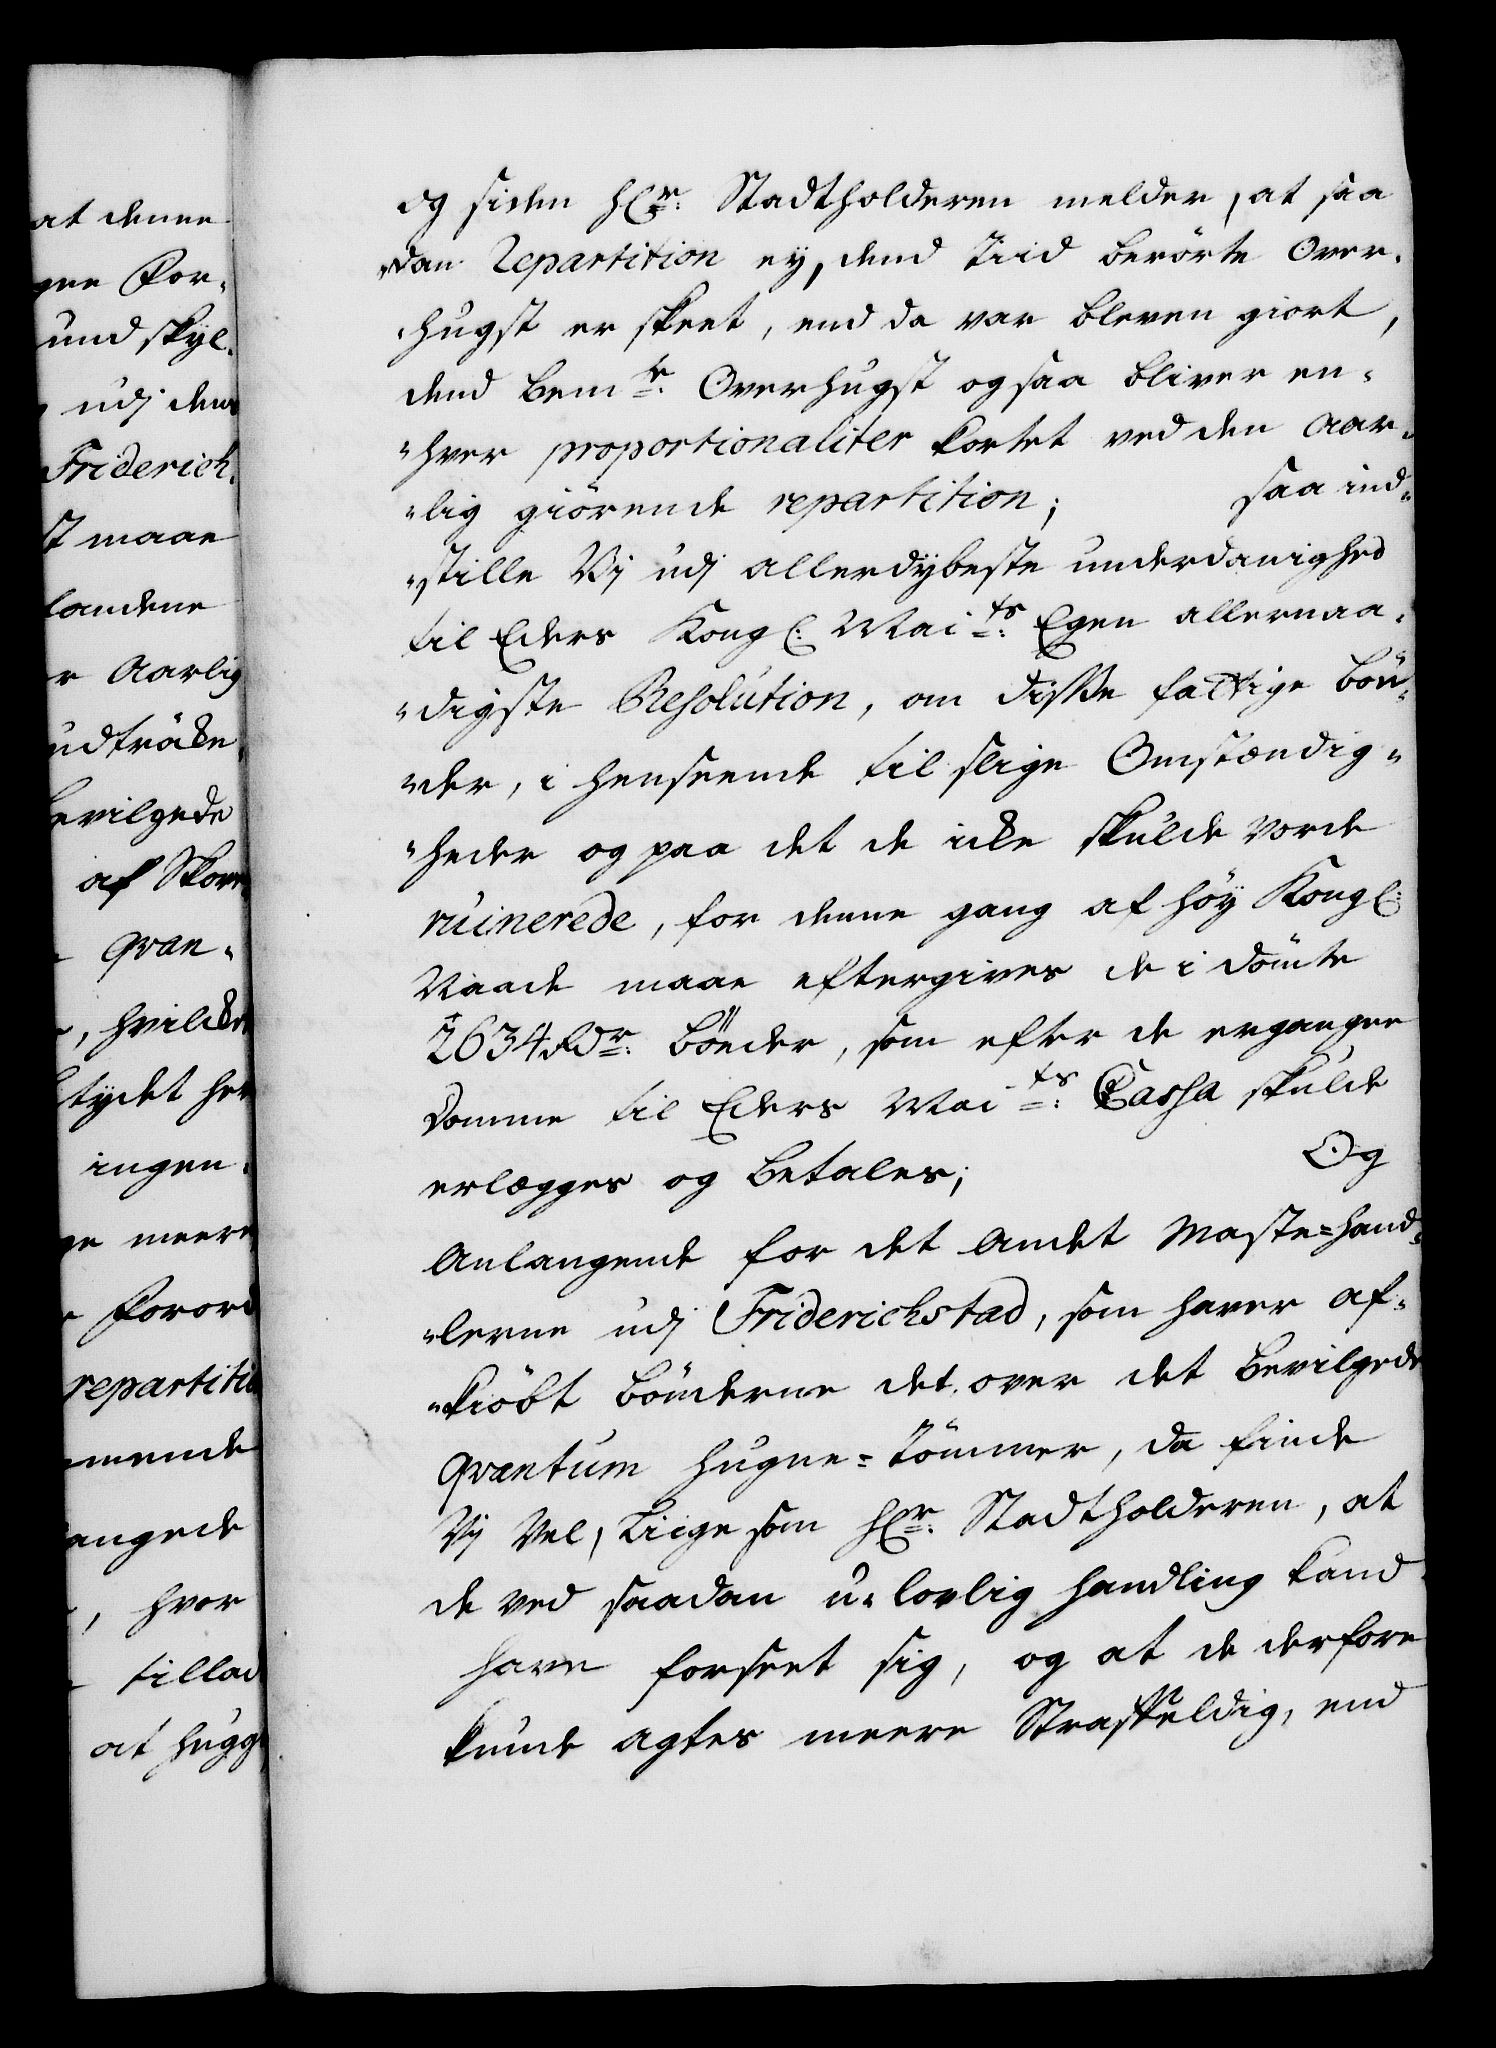 at denne
gne For-
und skyl-
udj dem
Friderich-
maae
landene
r Aarlig
udtröcke-
bevilgede
af Skov
qvan-
, hvilcket
tydet her
ingen-
ge meere
Forord
repartitio
mende
angede
, hvor
tillad
at hugg
og siden Hr: Stadtholderen melder, at saa
„dan Repartition ey, dend Tiid berörte Over-
„hugst er skeet, end da var bleven giort,
dend bemte: Overhugst ogsaa bliver en-
„hver proportionaliter kortet ved den Aar-
„lig giörende repartition; saa ind-
„stille Vj udj allerdybeste underdanighed
til Eders Kongl: Maits: Egen allernaa-
„digste Resolution, om disse fattige bön-
„der, i henseende til slige Omstændig-
„heder og paa det de icke skulde vorde
ruinerede, for denne gang af höy Kongl:
Naade maae eftergives de i dömte
2634 Rdr: bönder, som efter de ergangne
Domme til Eders Maits: Cassa skulde
erlægges og betales; Og
Anlangende for det Andet Maste=Hand-
„lerne udj Friderichstad, som haver af-
„kiöbt bönderne det over det bevilgede
qvantum hugne=Tömmer, da finde
Vj Vel, Liigesom Hr: Stadtholderen, at
de ved saadan u-lovlig Handling kand
have forseet sig, og at de derfore
kunde agtes meere Straffeldig, end